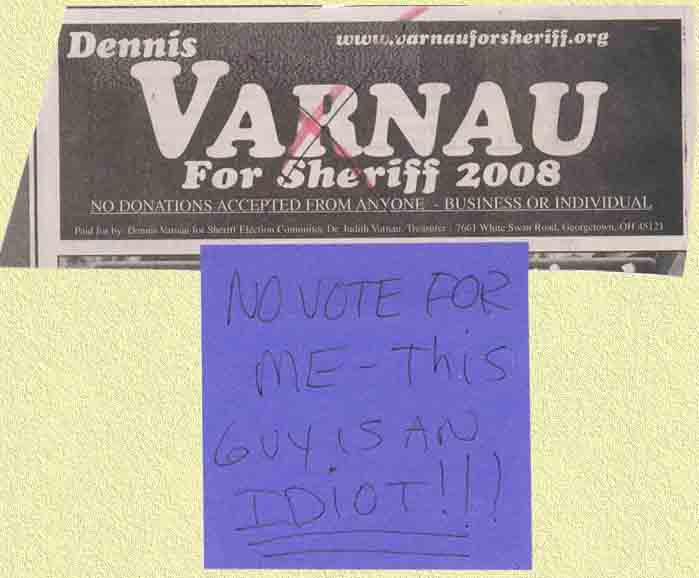 Dennis
www.varnauforsheriff.org
VARNAU
For Sheriff 2008
NO DONATIONS ACCEPTED FROM ANYONE - BUSINESS OR INDIVIDUAL
Paid for by: Dennis Varnau for Sheriff Election Committee, Dr. Judith Varnau, Treasurer : 7661 White Swan Road, Georgetown, OH 45121
NO VOTE FOR
ME - This
GUY IS AN
IDiOT!!!